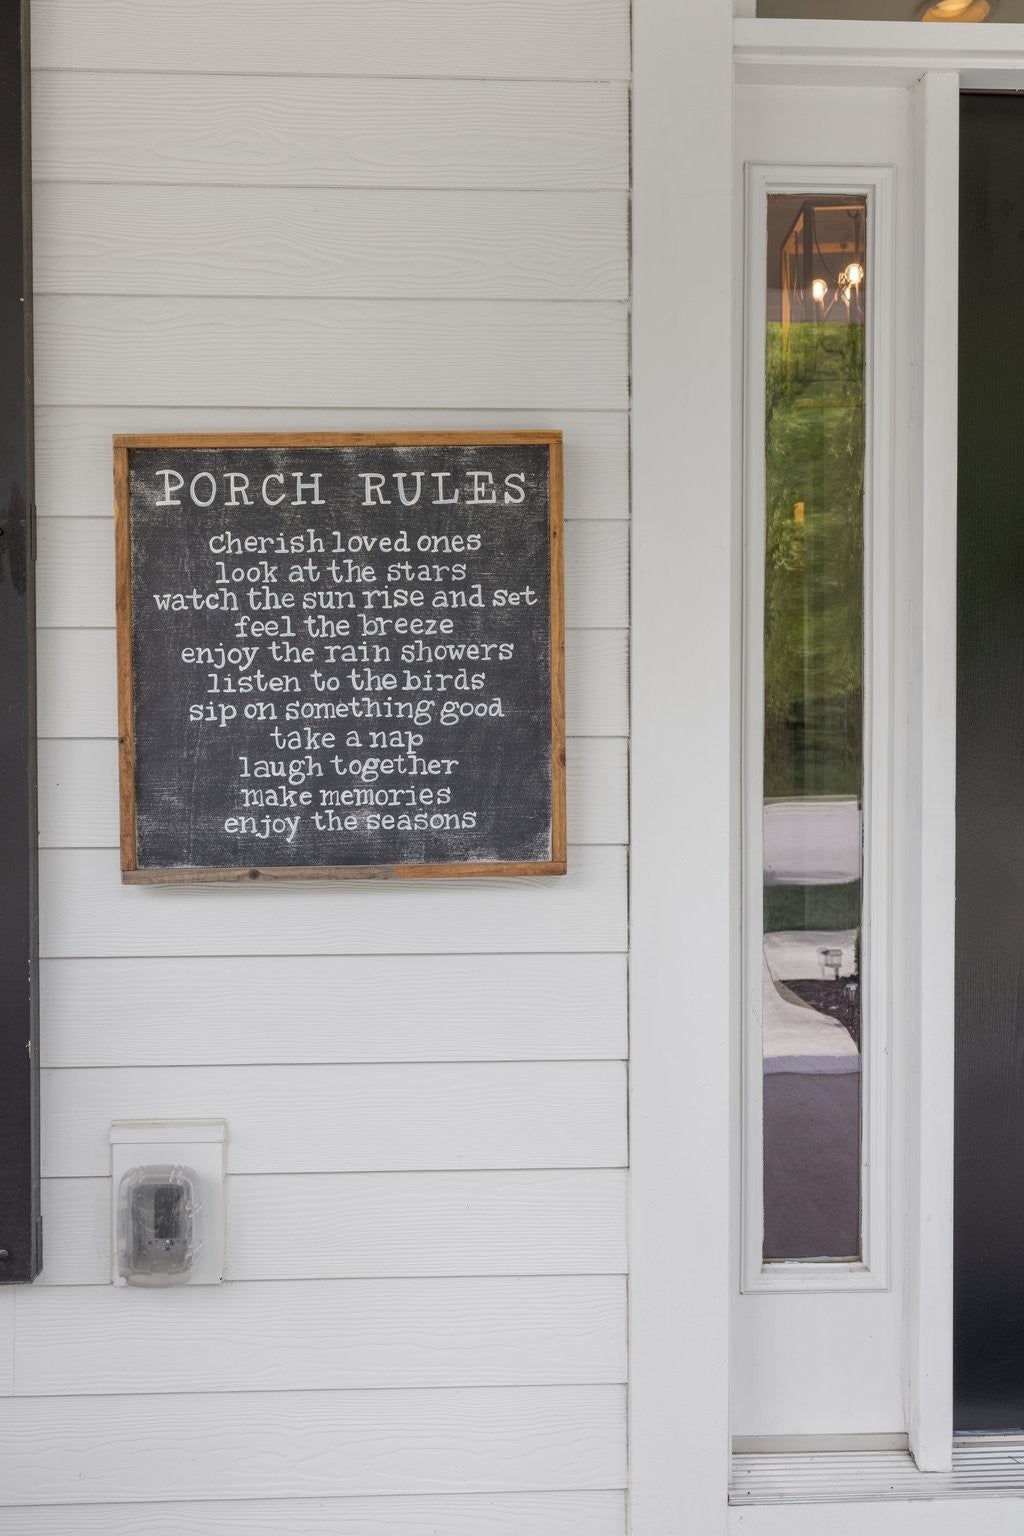 PORCH RULES
cherish loved ones
look at the stars
watch the sun rise and set
feel the breeze
enjoy the rain showers
listen to the birds
sip on something good
take a nap
laugh together
make memories
enjoy the seasons